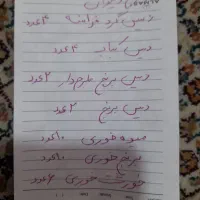 دیس گرد
۴ عدد
دیس کباب ۴ عدد
دیس برنج طرحدار ۲ عدد
دیس برنج ۲ عدد
میوه خوری ۱۰ عدد
برنج خوری ۱۰ عدد
خورشت خوری ۶ عدد